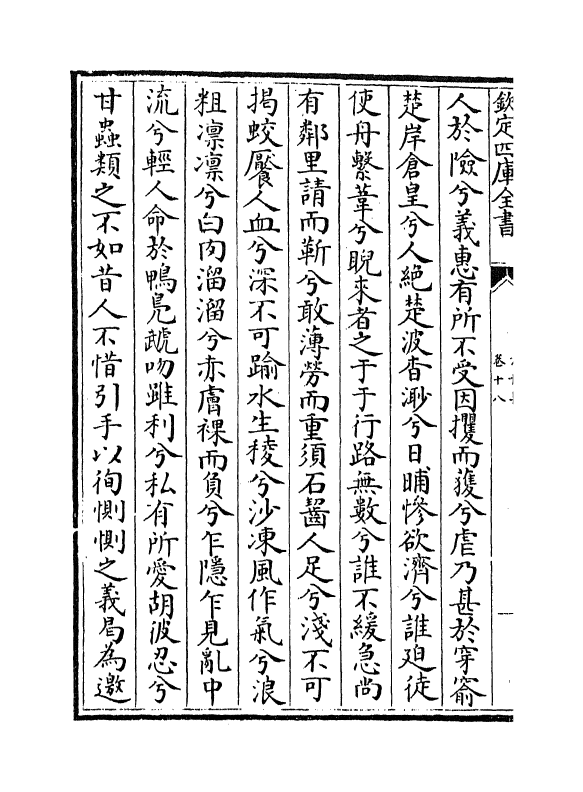 欽定四庫全書
卷十八
人於險兮義惠有所不受因攫而獲兮虐乃甚於穿窬
楚岸倉皇兮人絕楚波杳渺兮日晡慘欲濟兮誰廹徒
使舟繫葦兮睨來者之于于行路無數兮誰不緩急尚
有鄰里請而靳兮敢薄勞而重須石齧人足兮淺不可
揭蛟饜人血兮深不可踰水生稜兮沙凍風作氣兮浪
粗凛凛兮白肉溜溜兮赤膚裸而負兮乍隱乍見亂中
流兮輕人命於鴨鳧虣吻雖利兮私有所愛胡彼忍兮
甘蟲類之不如昔人不惜引手以徇惻惻之義曷為邀